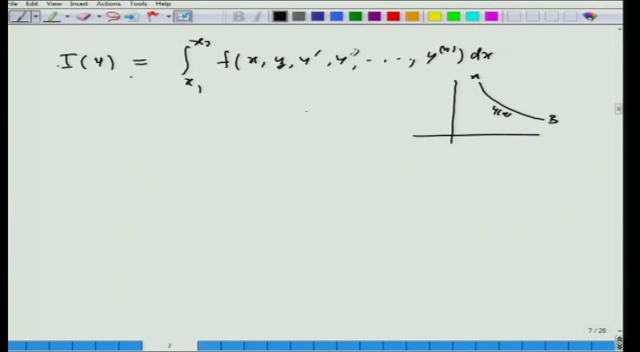 File Edit View Insert Actions Tools Help
I(y) = ∫_{x₁}^{x₂} f(x, y, y', y'', ....., y⁽ⁿ⁾) dx
A
y(x)
B
7 / 25
7